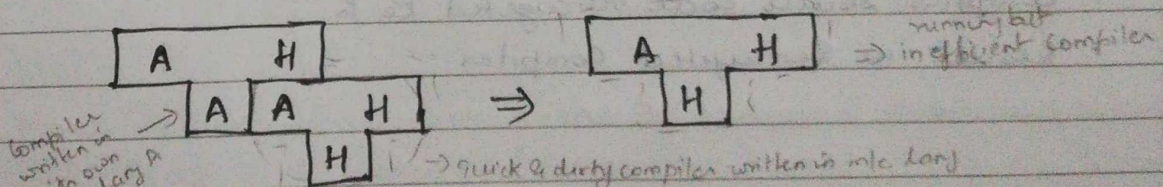 A H
A A H
H
compiler written in its own lang A
→ quick & dirty compiler written in m/c lang
⇒
A H
H
⇒ running but inefficient compiler